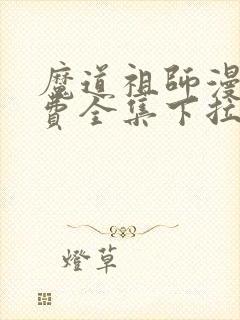 魔道祖師漫
費全集下拉
燈草